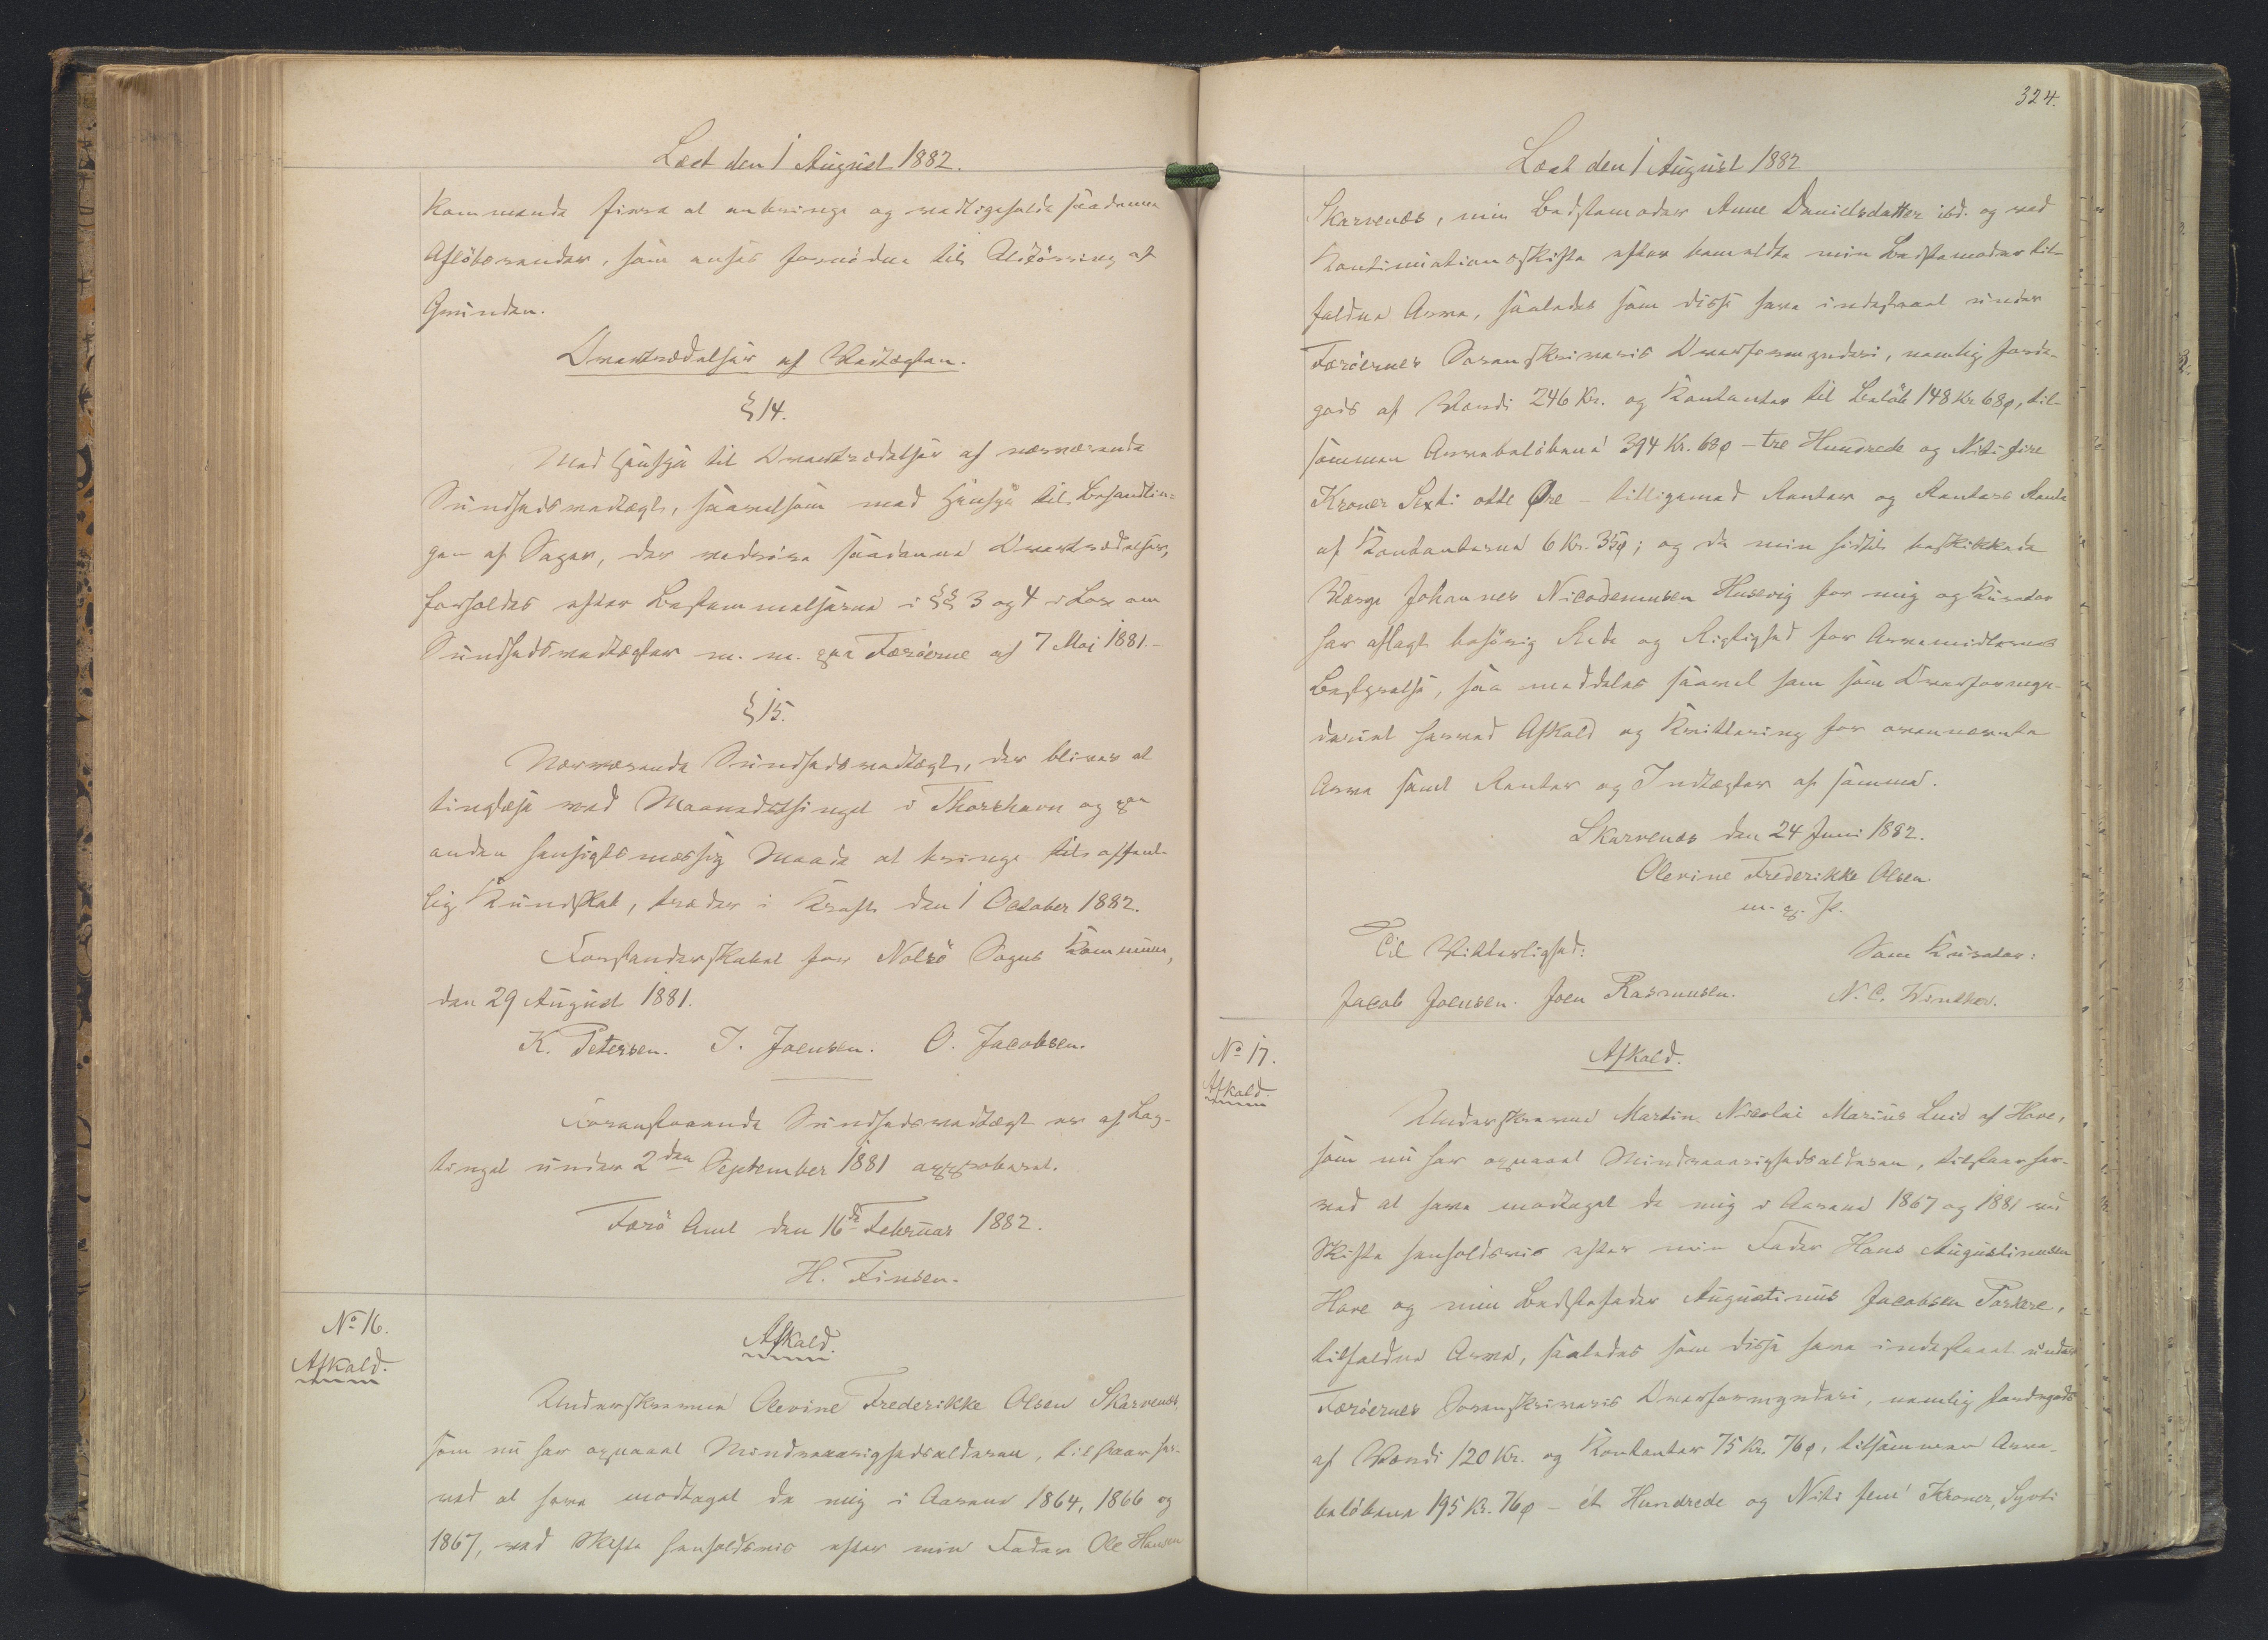 Læst den 1 August 1882.
kommende Fjerre at anbringe og vedligeholde saadanne
Afløbsrender, som anses fornødne til Udtørring af
Grunden.
Overtrædelser af Vedtægten.
§ 14.
Med Hensyn til Overtrædelser af nærværende
Sundhedsvedtægt, saavelsom med Hensyn til Behandlin-
gen af Sager, der vedrøre saadanne Overtrædelser,
forholdes efter Bestemmelserne i §§ 3 og 4 i Lov om
Sundhedsvedtægter m. m. paa Færøerne af 7 Maj 1881.-
§ 15.
Nærværende Sundhedsvedtægt, der bliver at
tinglæse ved Maanedsthinget i Thorshavn og paa
anden hensigtsmæssig Maade at bringe til offent-
lig Kundskab, træder i Kraft den 1 October 1882.
Forstanderskabet for Nolsø Sogns Kommune,
den 29 August 1881.
K. Petersen. J. Joensen. O. Jacobsen.
Foranstaaende Sundhedsvedtægt er af Lag-
tinget under 2den September 1881 approberet.
Færø Amt den 16de Februar 1882.
H. Finsen.
No 16.
Afkald.
Afkald.
Underskrevne Olevine Frederikke Olsen Skarvenes,
som nu har opnaaet Mindreaarighedsalderen, tilstaar her-
ved at have modtaget de mig i Aarene 1864, 1866 og
1867, ved Skifte henholdsvis efter min Fader Ole Hansen
324.
Læst den 1 August 1882
Skarvenes, min Bedstemoder Anne Danielsdatter ibd. og ved
Kontinuationsskifte efter bemeldte min Bedstemoder til-
faldne Arve, saaledes som disse have indestaaet under
Færøernes Sorenskriveris Overformynderi, nemlig Jorde-
gods af Værdi 246 Kr. og Kontanter til Beløb 148 Kr 68 ø, til-
sammen Arvebeløbene 394 Kr. 68 ø - tre Hundrede og Niti fire
Kroner Sexti otte Øre - tilligemed Renter og Renters Rente
af Kontanterne 6 Kr. 35 ø; og da min hidtil beskikkede
Værge Johannes Nicodemusen Husevig for mig og Kurator
har aflagt behørig Rede og Rigtighed for Arvemidlernes
Bestyrelse, saa meddeles saavel ham som Overformyn-
deriet herved Afkald og Kvittering for ovennævnte
Arve samt Renter og Indtægter af samme.
Skarvenes den 24 Juni 1882.
Olevine Frederikke Olsen
m. p. P.
Til Vitterlighed: Som Kurator:
Jacob Joensen. Joen Rasmusen. N. C. Winther.
No 17.
Afkald.
Afkald.
Underskrevne Martin Nicolai Marius Luid af Hove,
som nu har opnaaet Mindreaarighedsalderen, tilstaar her-
ved at have modtaget de mig i Aarene 1867 og 1881 ved
Skifte henholdsvis efter min Fader Hans Augustinusen
Hove og min Bedstefader Augustinus Jacobsen Porkere,
tilfaldne Arve, saaledes som disse have indestaaet under
Færøernes Sorenskriveris Overformynderi, nemlig Jordegods
af Værdi 120 Kr. og Kontanter 75 Kr. 76 ø, tilsammen Arve-
beløbene 195 Kr. 76 ø - ét Hundrede og Niti fem Kroner, Syvti